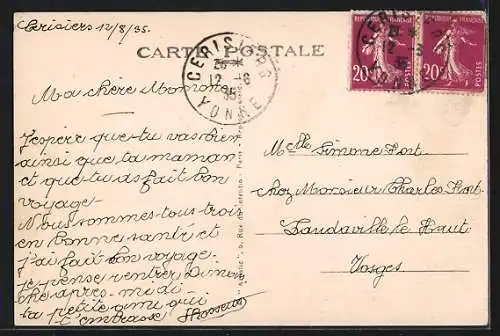 Cerisiers 12/8/35.
CARTE POSTALE
CERISIERS
12 - 8
35
YONNE
20c
POSTES
20c
POSTES
Ma chère Momone
J'espère que tu vas bien
ainsi que ta maman
et que tu as fait bon
voyage.
Nous sommes tous trois
en bonne santé et
j'ai fait bon voyage.
je pense rentrer Diman
che après-midi.
ta petite amie qui
t'embrasse
Melle Simone Fort
chez Monsieur Charles Fort
Landaville le Haut
Vosges